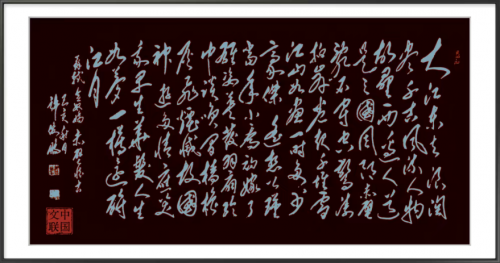 大江东去浪淘
尽千古风流人物
故垒西边人道
是三国周郎赤壁
乱石穿空惊涛
拍岸卷起千堆雪
江山如画一时多少
豪杰遥想公瑾
当年小乔初嫁了
雄姿英发羽扇纶
巾谈笑间樯橹
灰飞烟灭故国
神游多情应笑
我早生华发人生
如梦一樽还酹
江月
苏轼念奴娇赤壁怀古
中国文联